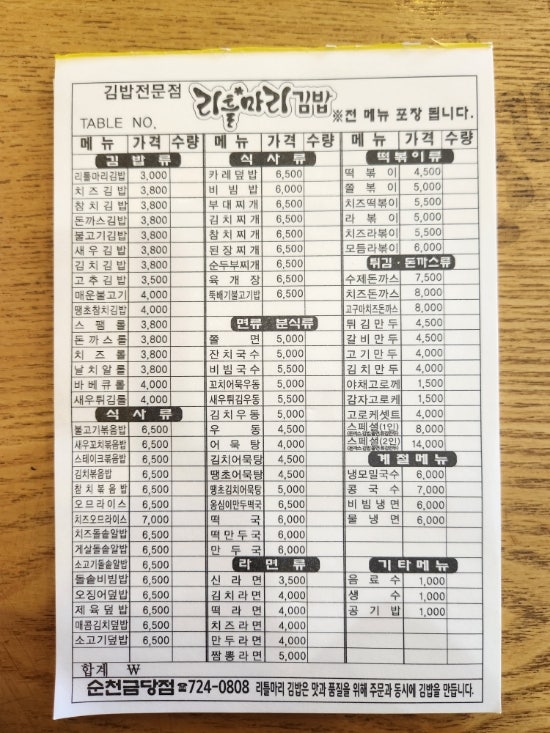 김밥전문점 리틀마리김밥 ※전 메뉴 포장 됩니다.
TABLE NO.
메뉴 가격 수량
김밥류
리틀마리김밥 3,000
치즈김밥 3,800
참치김밥 3,800
돈까스김밥 3,800
불고기김밥 3,800
새우김밥 3,800
김치김밥 3,800
고추김밥 3,500
매운불고기 4,000
땡초참치김밥 4,000
스팸롤 3,800
돈까스롤 3,800
치즈롤 3,800
날치알롤 3,800
바베큐롤 4,000
새우튀김롤 4,000
식사류
불고기볶음밥 6,500
새우꼬치볶음밥 6,500
스테이크볶음밥 6,500
김치볶음밥 6,500
참치볶음밥 6,500
오므라이스 6,500
치즈오므라이스 7,000
치즈돌솥알밥 6,500
게살돌솥알밥 6,500
소고기돌솥알밥 6,500
돌솥비빔밥 6,500
오징어덮밥 6,500
제육덮밥 6,500
매콤김치덮밥 6,500
소고기덮밥 6,500
메뉴 가격 수량
식사류
카레덮밥 6,500
비빔밥 6,000
부대찌개 6,500
김치찌개 6,500
참치찌개 6,500
된장찌개 6,500
순두부찌개 6,500
육개장 6,500
뚝배기불고기밥 6,500
면류 분식류
쫄면 5,000
잔치국수 5,000
비빔국수 5,500
꼬치어묵우동 5,000
새우튀김우동 5,500
김치우동 5,000
우동 4,500
어묵탕 4,000
김치어묵탕 4,500
땡초어묵탕 4,500
땡초김치어묵탕 5,000
옹심이만두떡국 6,500
떡국 6,000
떡만두국 6,000
만두국 6,000
라면류
신라면 3,500
김치라면 4,000
떡라면 4,000
치즈라면 4,000
만두라면 4,000
짬뽕라면 5,000
메뉴 가격 수량
떡볶이류
떡볶이 4,500
쫄볶이 5,000
치즈떡볶이 5,500
라볶이 5,000
치즈라볶이 5,500
모듬라볶이 6,000
튀김·돈까스류
수제돈까스 7,500
치즈돈까스 8,000
고구마치즈돈까스 8,000
튀김만두 4,500
갈비만두 4,500
고기만두 4,000
김치만두 4,000
야채고로케 1,500
감자고로케 1,500
고로케셋트 4,000
스페셜(1인) 8,000
스페셜(2인) 14,000
계절메뉴
냉모밀국수 6,000
콩국수 7,000
비빔냉면 6,000
물냉면 6,000
기타메뉴
음료수 1,000
생수 1,000
공기밥 1,000
합계 ₩
순천금당점 ☎724-0808 리틀마리 김밥은 맛과 품질을 위해 주문과 동시에 김밥을 만듭니다.